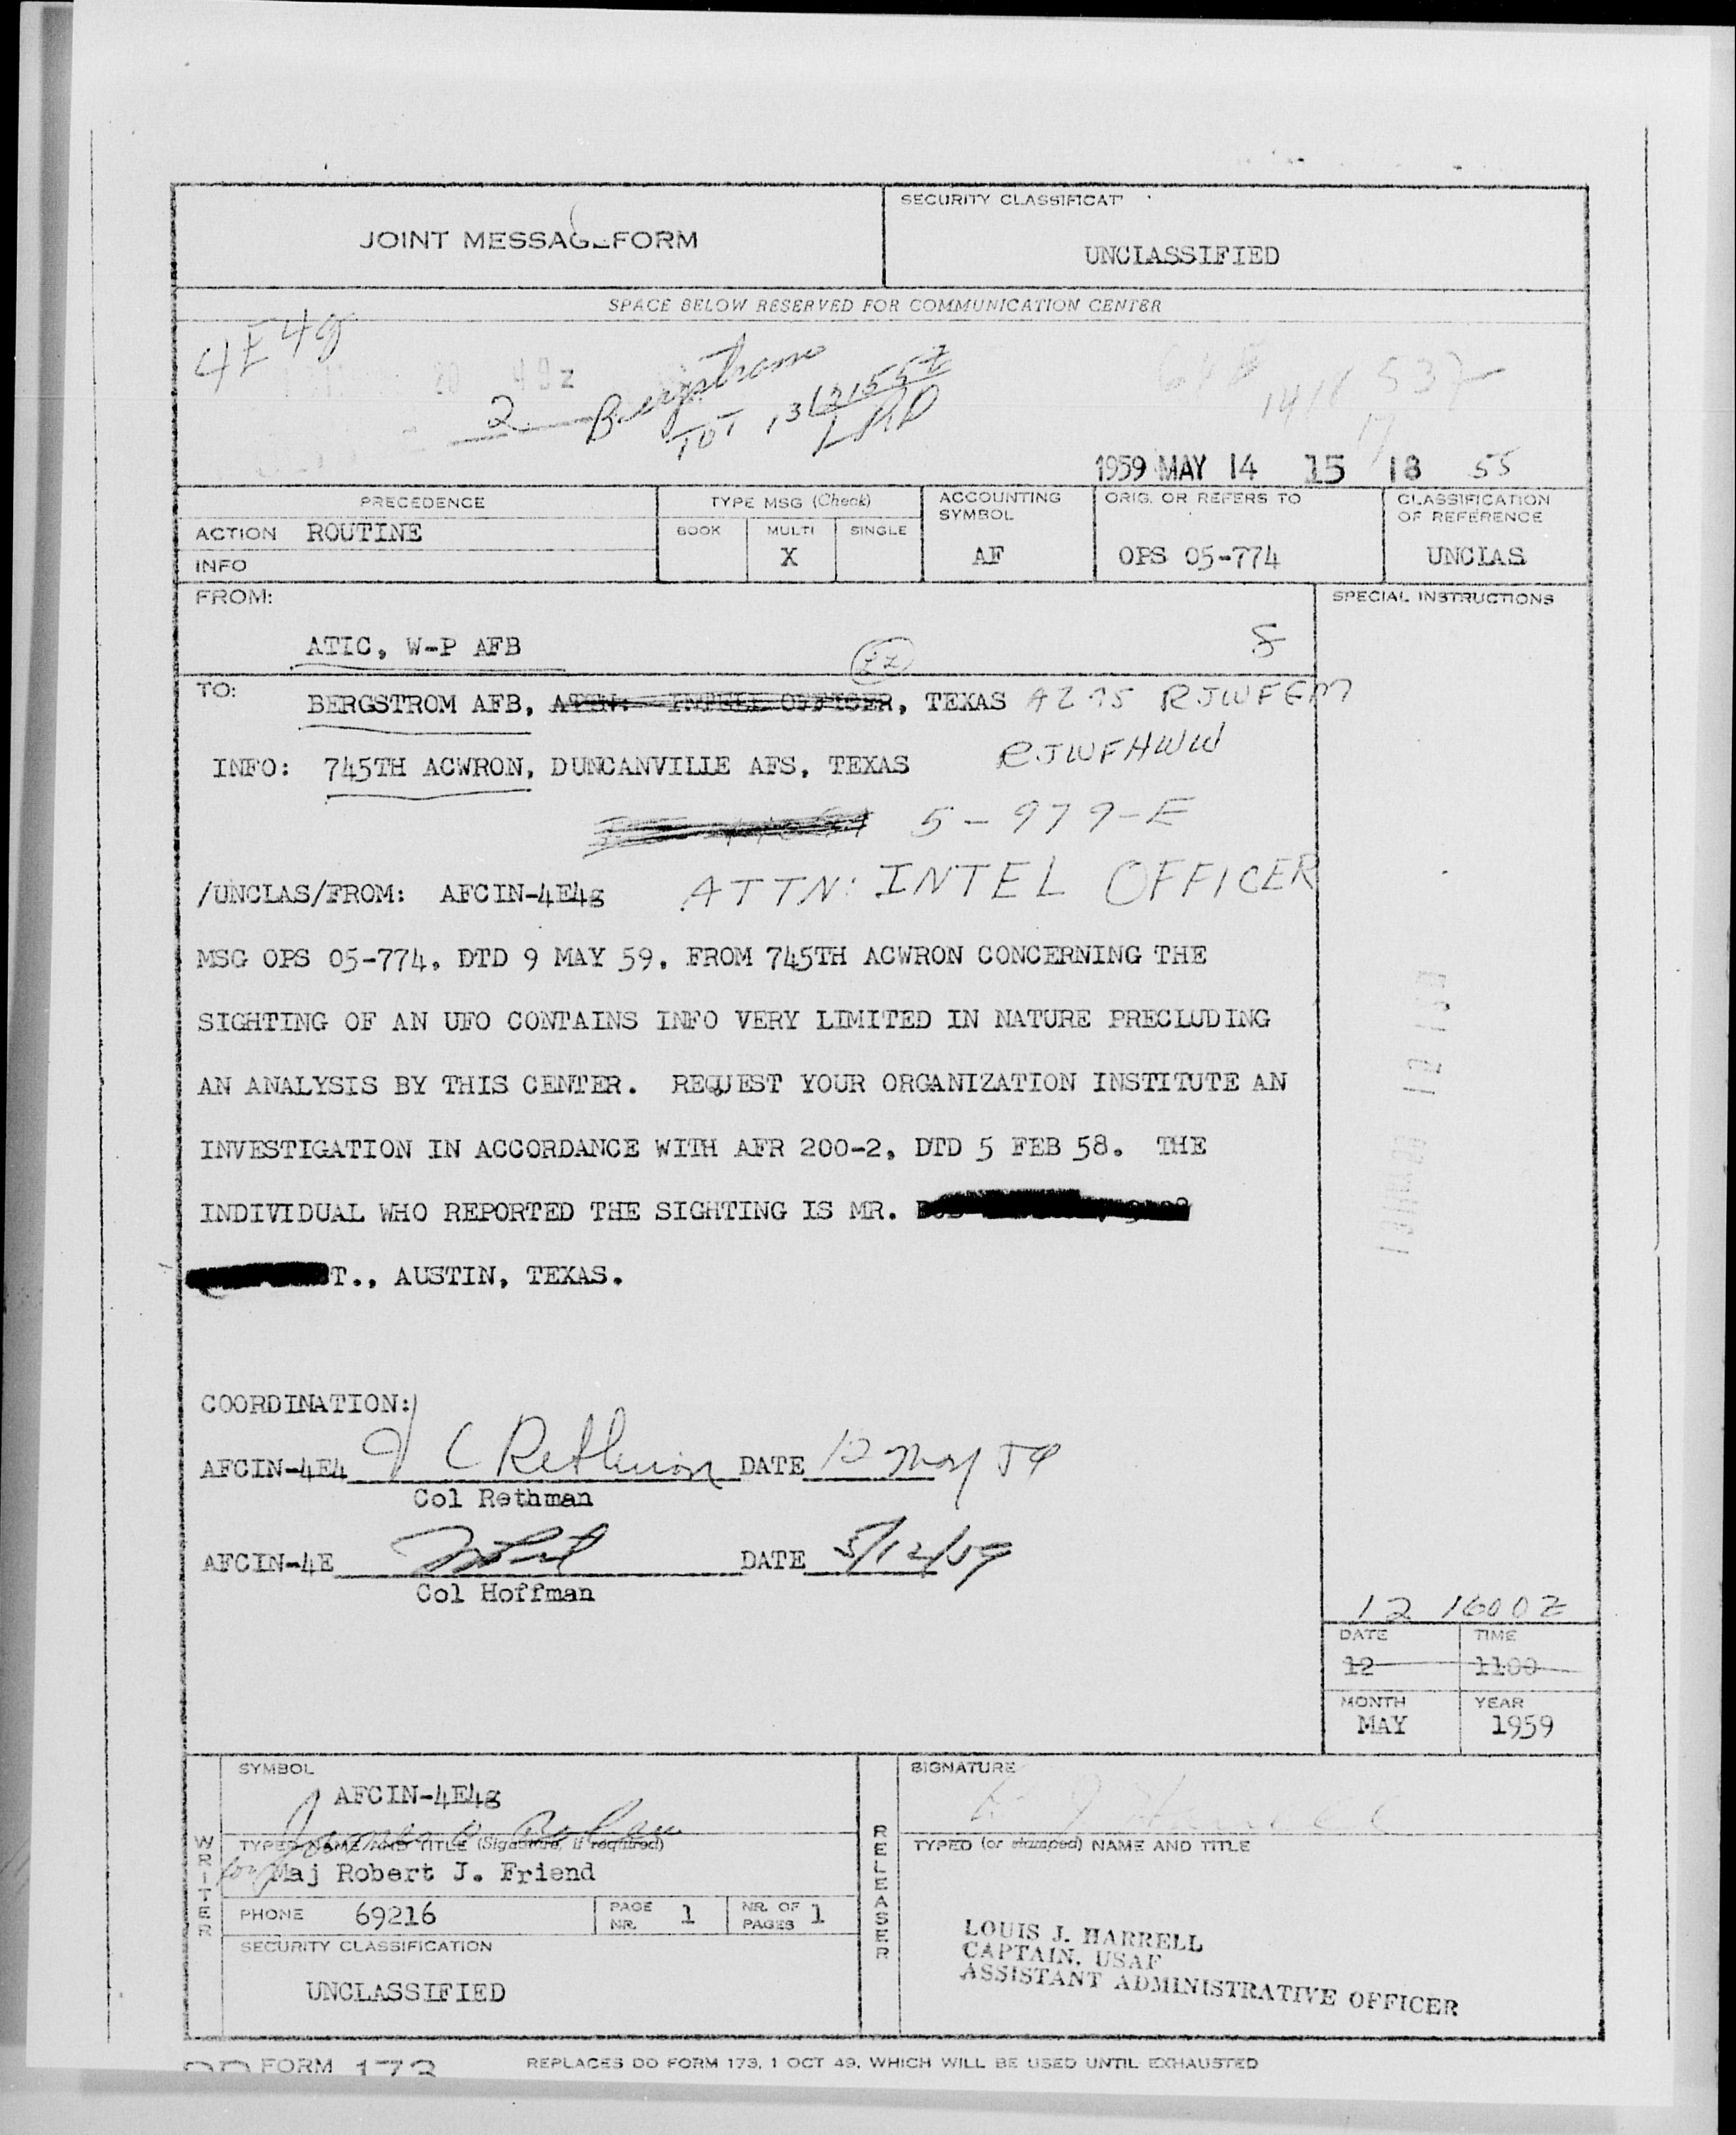 JOINT MESSAGEFORM
SECURITY CLASSIFICAT
UNCLASSIFIED
SPACE BELOW RESERVED FOR COMMUNICATION CENTER
4E4g
2 Bergstrom
TOT 13/2155Z
1959 MAY 14 15 18 55
PRECEDENCE
TYPE MSG (Check)
ACCOUNTING SYMBOL
ORIG. OR REFERS TO
CLASSIFICATION OF REFERENCE
ACTION ROUTINE
BOOK MULTI SINGLE
INFO
X
AF
OPS 05-774
UNCLAS
FROM:
SPECIAL INSTRUCTIONS
ATIC, W-P AFB
TO:
BERGSTROM AFB, ATTN: INTELL OFFICER, TEXAS RJWFGM
INFO: 745TH ACWRON, DUNCANVILLE AFS, TEXAS RJWFHWW
5-979-E
/UNCLAS/FROM: AFCIN-4E4g ATTN: INTEL OFFICER
MSG OPS 05-774, DTD 9 MAY 59, FROM 745TH ACWRON CONCERNING THE
SIGHTING OF AN UFO CONTAINS INFO VERY LIMITED IN NATURE PRECLUDING
AN ANALYSIS BY THIS CENTER. REQUEST YOUR ORGANIZATION INSTITUTE AN
INVESTIGATION IN ACCORDANCE WITH AFR 200-2, DTD 5 FEB 58. THE
INDIVIDUAL WHO REPORTED THE SIGHTING IS MR.
T., AUSTIN, TEXAS.
COORDINATION:
AFCIN-4E4 J C Rethman DATE 12 May 59
Col Rethman
AFCIN-4E DATE 5/12/59
Col Hoffman
12 1600Z
DATE TIME
12 1100
MONTH YEAR
MAY 1959
WRITER
SYMBOL
AFCIN-4E4g
TYPED NAME AND TITLE (Signature, if required)
for Maj Robert J. Friend
PHONE 69216
PAGE NR. 1
NR. OF PAGES 1
SECURITY CLASSIFICATION
UNCLASSIFIED
RELEASER
SIGNATURE
L J Harrell
TYPED (or stamped) NAME AND TITLE
LOUIS J. HARRELL
CAPTAIN, USAF
ASSISTANT ADMINISTRATIVE OFFICER
DD FORM 173
REPLACES DD FORM 173, 1 OCT 49, WHICH WILL BE USED UNTIL EXHAUSTED